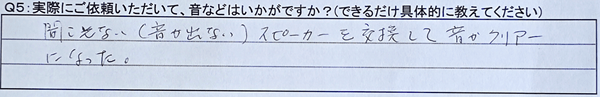 Q5:実際にご依頼いただいて、音などはいかがですか？(できるだけ具体的に教えてください)
聞こえない(音が出ない)スピーカーを交換して音がクリアー
になった。